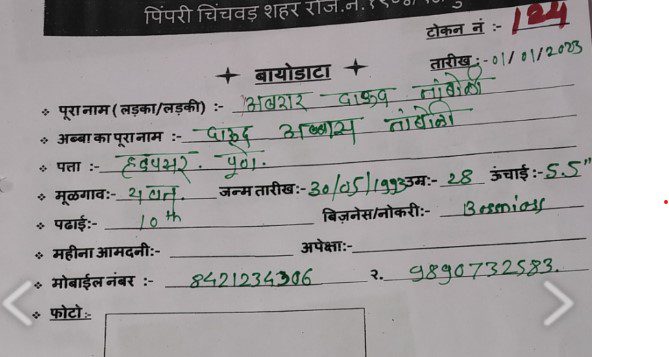 पिंपरी चिंचवड़ शहर रजि.नं.
टोकन नं :- 124
तारीख :- 01/01/2023
बायोडाटा
पूरा नाम (लड़का/लड़की) :- अबरार दाऊद तांबोली
अब्बा का पूरा नाम :- दाऊद अब्बास तांबोली
पता :- हडपसर. पुणे.
मूळगाव:- यवत. जन्म तारीख:- 30/05/1993 उम्र:- 28 ऊंचाई :- 5.5"
पढाई:- 10th बिज़नेस/नोकरी:-
महीना आमदनी:- अपेक्षा:-
मोबाईल नंबर :- 8421234306 २. 9890732583.
फोटो :-